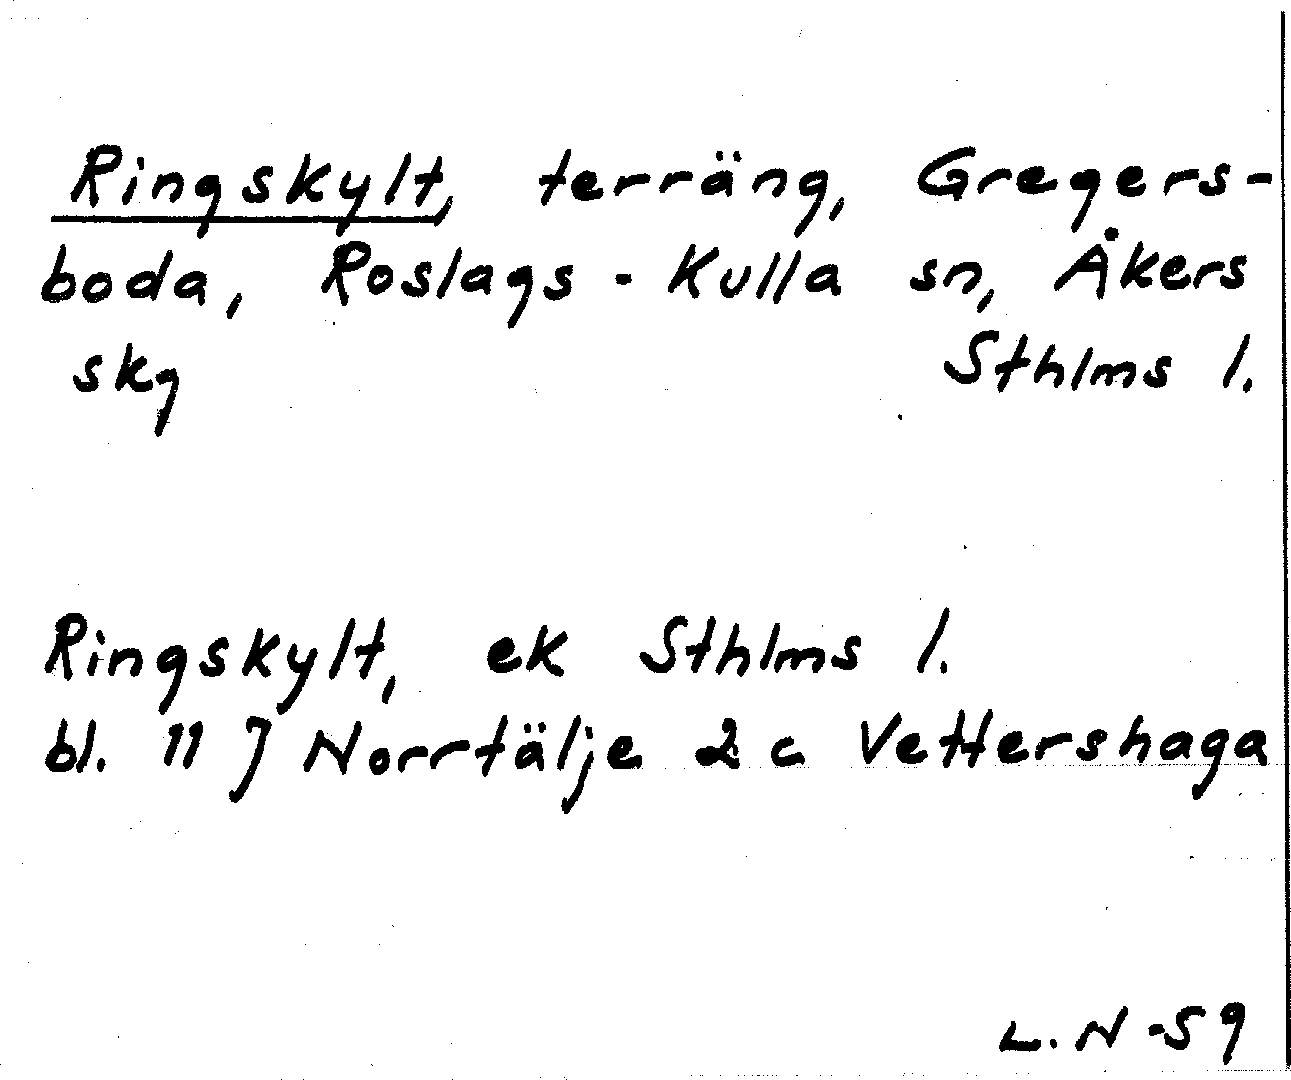 Ringskylt, terräng, Gregers-
boda, Roslags-Kulla sn, Åkers
skg Sthlms l.
Ringskylt, ek Sthlms l.
bl. 11 J Norrtälje 2 c Vettershaga
L. N -59